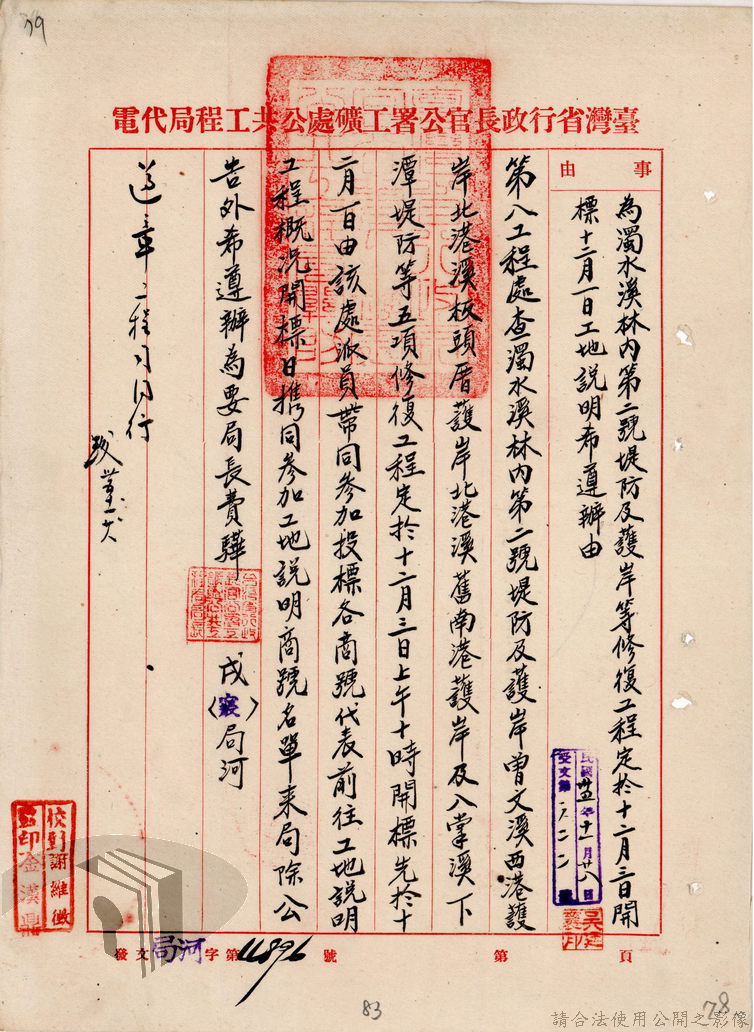 79
臺灣省行政長官公署工礦處公共工程局代電
事由
為濁水溪林內第二號堤防及護岸等修復工程定於十二月三日開
標十二月一日工地說明希遵辦由
民國卅五年十一月廿八日
第八工程處查濁水溪林內第二號堤防及護岸曾文溪西港護
岸北港溪板頭厝護岸北港溪舊南港護岸及八掌溪下
潭堤防等五項修復工程定於十二月三日上午十時開標先於十
二月一日由該處派員帶同參加投標各商號代表前往工地說明
工程概況開標日携同參加工地說明商號名單來局除公
告外希遵辦為要局長費驊
戌
(寢)
局河
校對謝維徵
監印金漢鼎
發文局河字第11896號
第 頁
83
78
請合法使用公開之影像